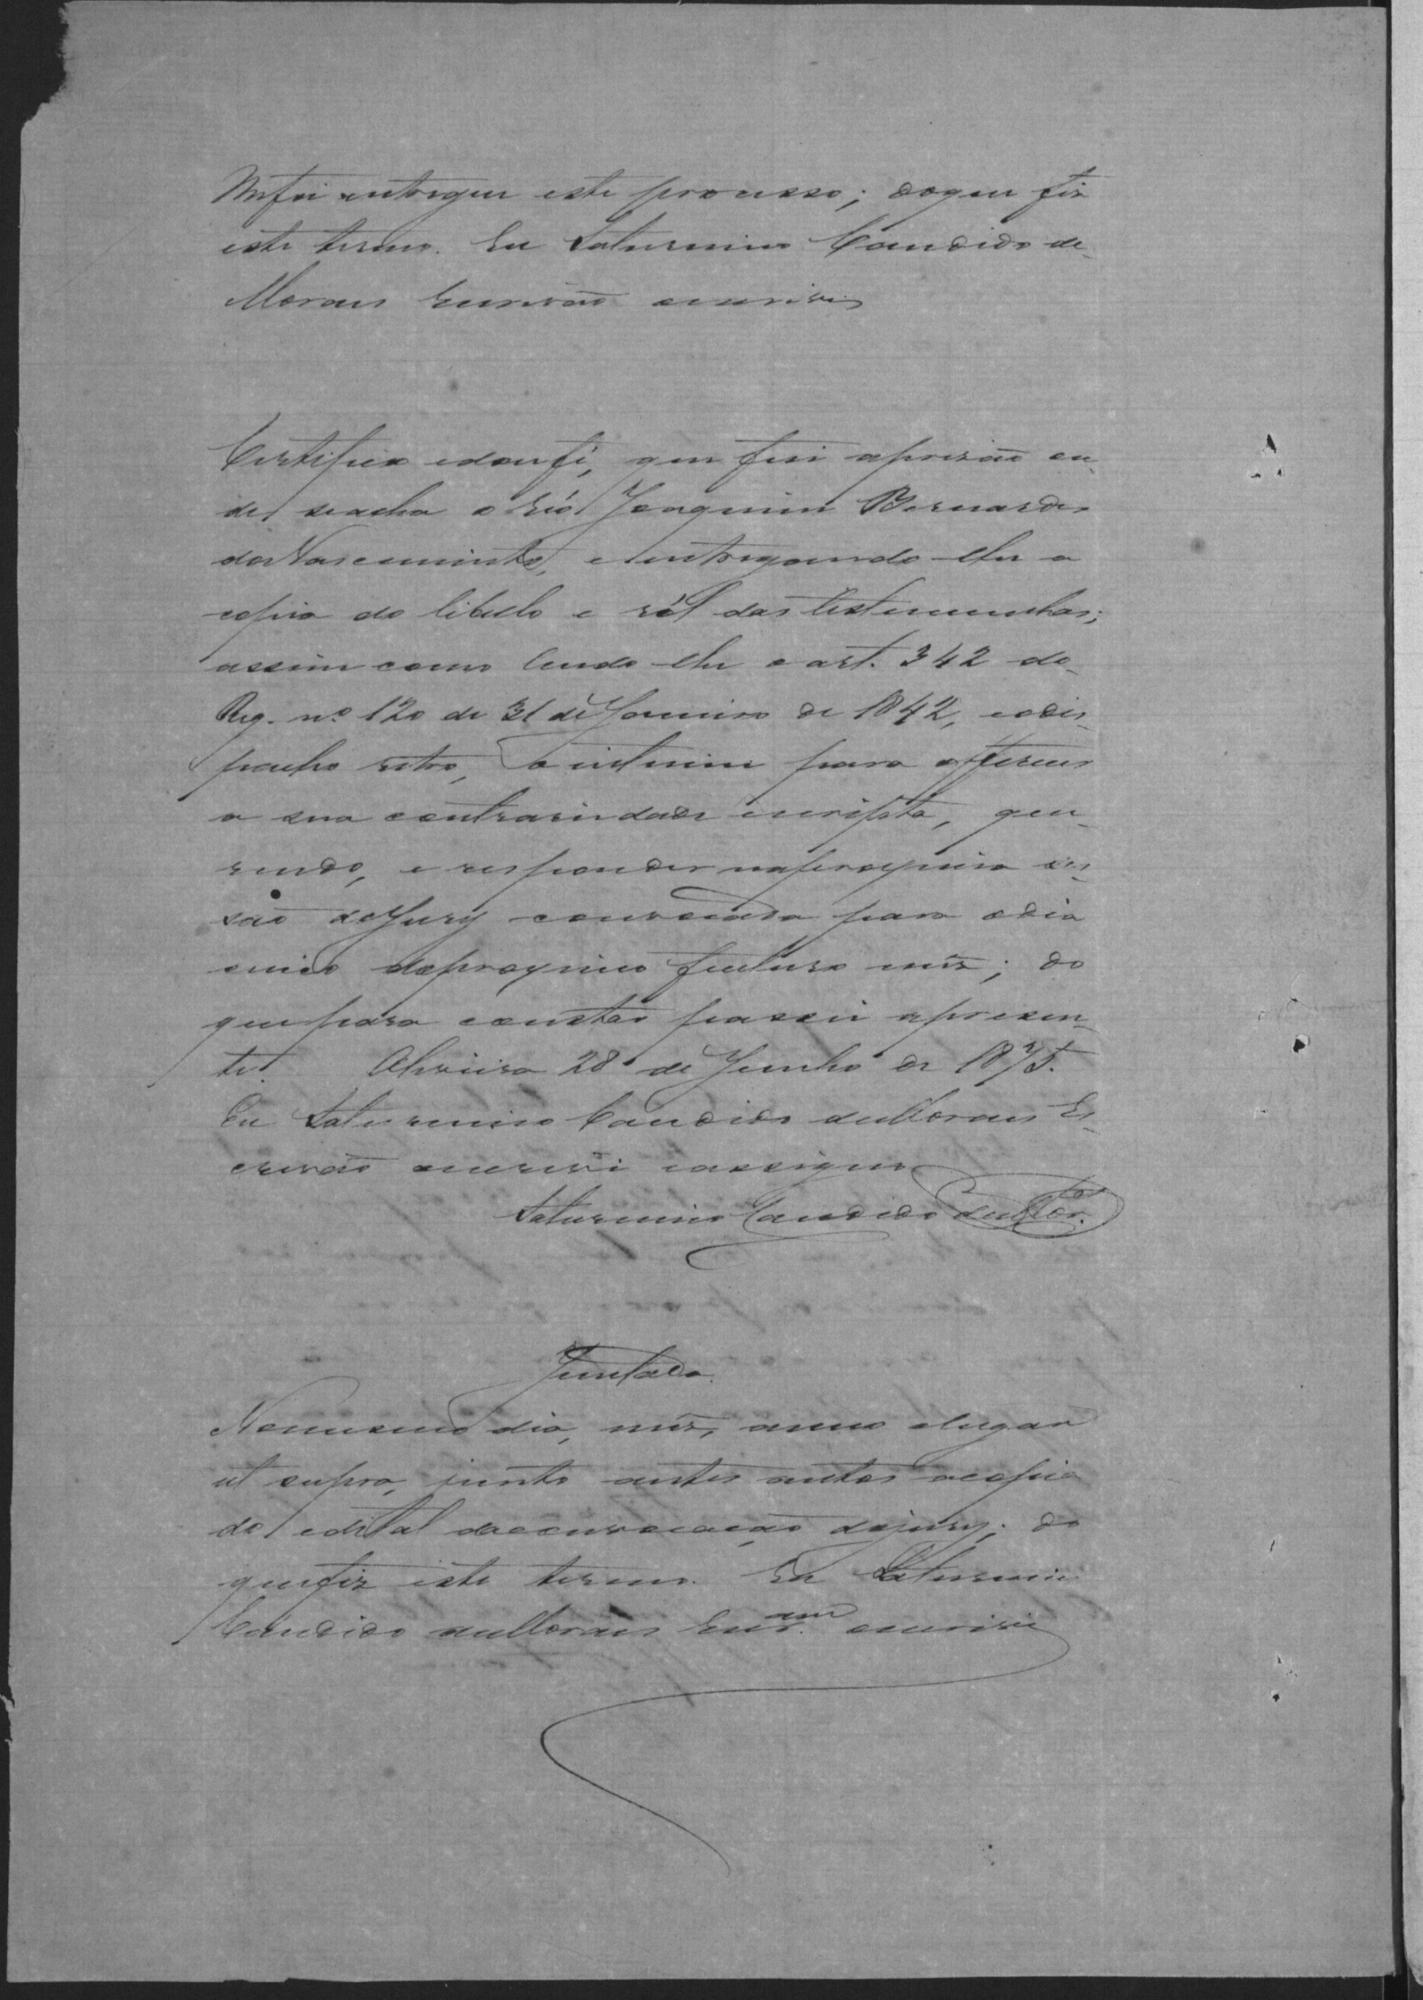 Me foi entregue este processo; do que fiz
este termo. Eu Saturnino Candido de
Moraes Escrivão escrivi
Certifico e dou fé, que fui a prisão on-
de se acha o réo Joaquim Bernardes
do Nascimento, e entregando-lhe a
copia do libello e ról das testemunhas;
assim como lendo-lhe o art. 342 do
Reg. nº 120 de 31 de Janeiro de 1842, e o des-
pacho retro, o intimei para offerecer
a sua contrariedade escripta, que-
rendo, e responder na proxima ses-
são do Jury convocada para o dia
do proximo futuro mez; do
que para constar passei a presen-
te. 28 de Junho de 1875.
Eu Saturnino Candido de Moraes Es-
crivão escrivi e assigno
Saturnino Candido de Mor.
Juntada.
No mesmo dia, mez, anno e lugar
ut supra, junto a estes autos a copia
do edital da convocação do jury; do
que fiz este termo. Eu Saturnino
Candido de Moraes Escr.am escrivi